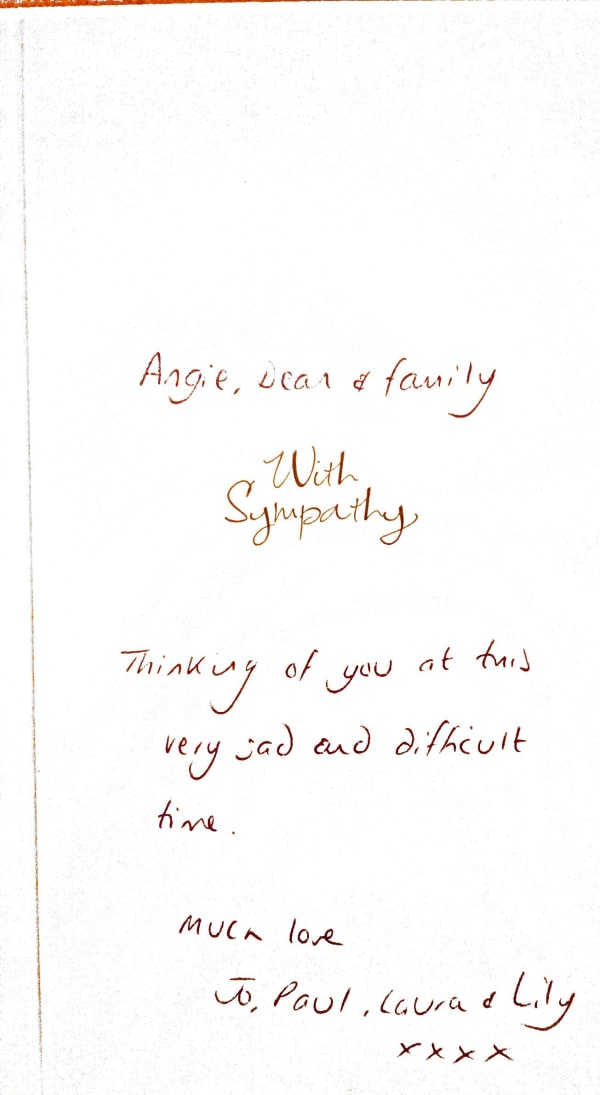 Angie, Dean & family
With
Sympathy
Thinking of you at this
very sad and difficult
time.
Much love
Jo, Paul, Laura & Lily
xxxx